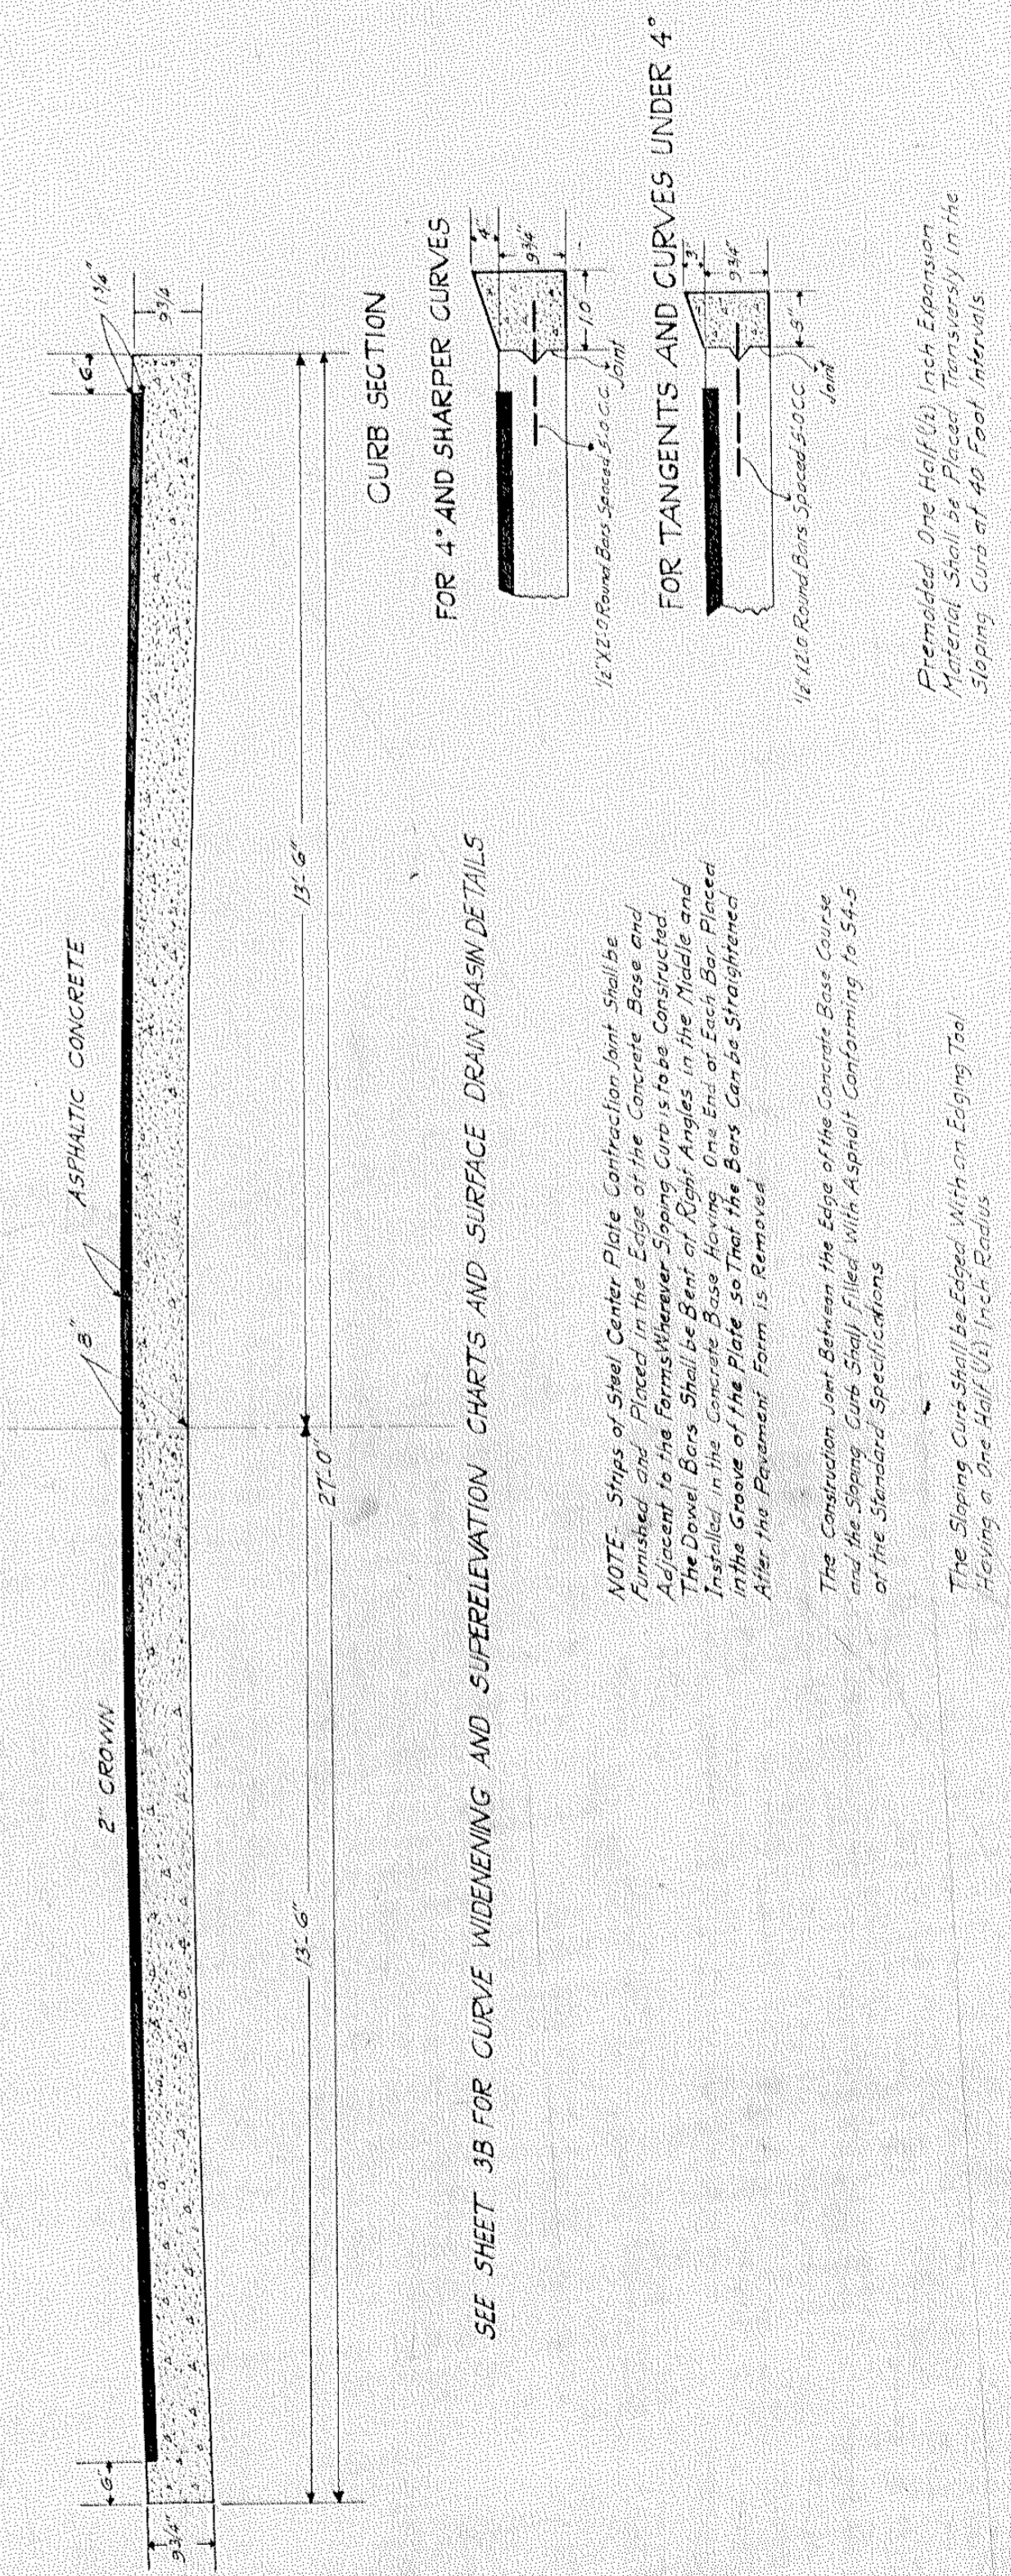 6"
1¾"
9¾
9¾"
6"
8"
ASPHALTIC CONCRETE
2" CROWN
13'-6"
13'-6"
27'-0"
CURB SECTION
FOR 4° AND SHARPER CURVES
4"
9¾"
1.0
½"X2'-0 Round Bars Spaced 5'-0 CC
Joint
FOR TANGENTS AND CURVES UNDER 4°
3"
9¾"
½"X2'-0 Round Bars Spaced 5'-0 CC
Joint
SEE SHEET 3B FOR CURVE WIDENENING AND SUPERELEVATION CHARTS AND SURFACE DRAIN BASIN DETAILS
NOTE- Strips of Steel Center Plate Contraction Joint Shall be
Furnished and Placed in the Edge of the Concrete Base and
Adjacent to the Forms Wherever Sloping Curb is to be Constructed
The Dowel Bars Shall be Bent at Right Angles in the Middle and
Installed in the Concrete Base Having One End of Each Bar Placed
in the Groove of the Plate so That the Bars Can be Straightened
After the Pavement Form is Removed
The Construction Joint Between the Edge of the Concrete Base Course
and the Sloping Curb Shall Filled With Asphalt Conforming to 54-5
of the Standard Specifications
The Sloping Curb Shall be Edged With an Edging Tool
Having a One Half (½) Inch Radius
Premolded One Half (½) Inch Expansion
Material Shall be Placed Transversly in the
Sloping Curb at 40 Foot Intervals.